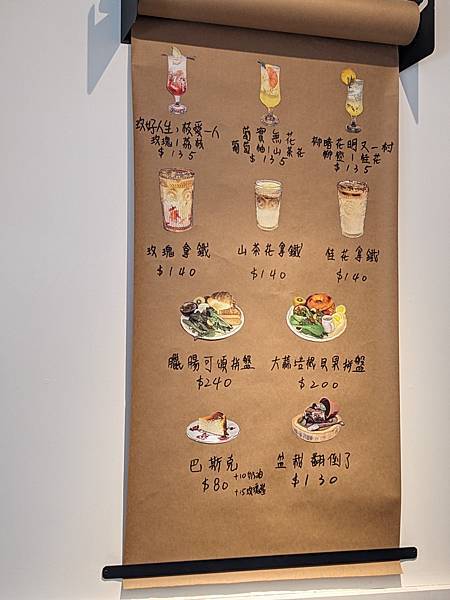 玫好人生，荔愛一人
玫瑰｜荔枝
$135
葡實無花
葡萄柚｜山茶花
$135
柳暗花明又一村
柳橙｜桂花
$135
玫瑰拿鐵
$140
山茶花拿鐵
$140
桂花拿鐵
$140
臘腸可頌拼盤
$240
大蒜培根貝果拼盤
$200
巴斯克
$80
+10奶油
笠甜翻倒了
$130